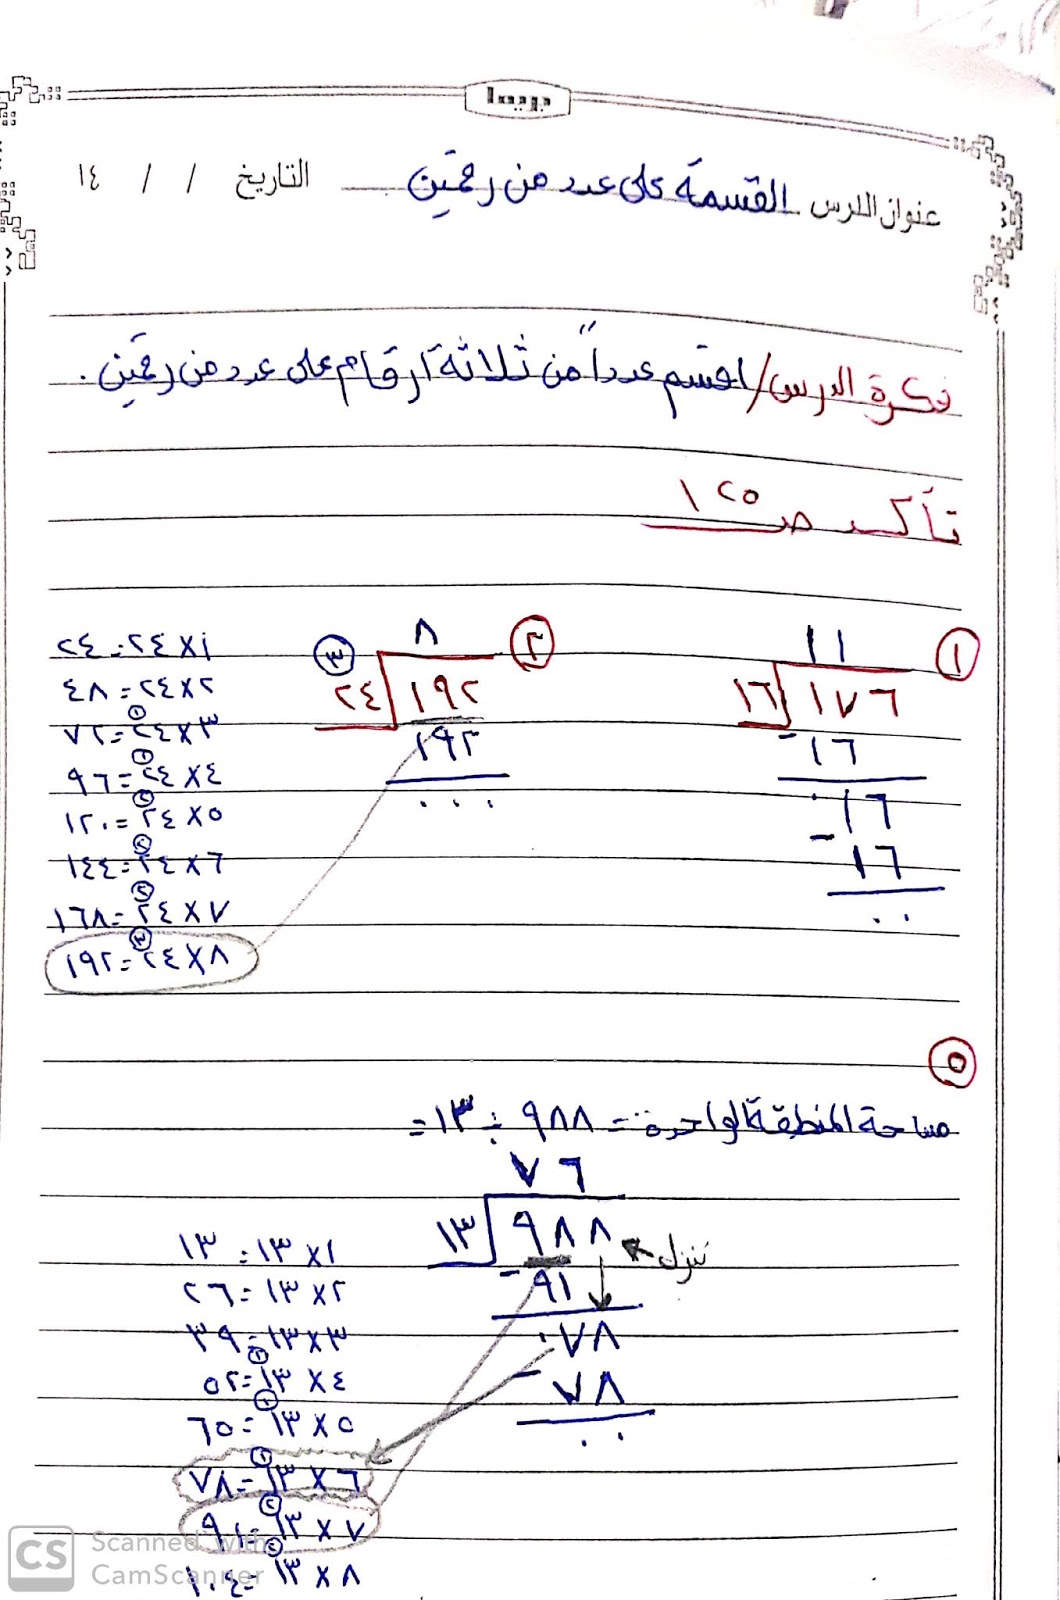 عنوان الدرس القسمة على عدد من رقمين التاريخ / / ١٤
فكرة الدرس/ اقسم عدداً من ثلاثة أرقام على عدد من رقمين .
تأكد ص ١٢٥
١
١١
١٦ ١٧٦
- ١٦
٠١٦
- ١٦
٠٠
٢
٣
٨
٢٤ ١٩٢
١٩٢
٠٠٠
١×٢٤=٢٤
٢×٢٤=٤٨
٣×٢٤=٧٢
١
٤×٢٤=٩٦
١
٥×٢٤=١٢٠
٢
٦×٢٤=١٤٤
٢
٧×٢٤=١٦٨
٢
٨×٢٤=١٩٢
٣
٥
مساحة المنطقة الواحدة = ٩٨٨ ÷ ١٣ =
٧٦
١٣ ٩٨٨
تنزل
- ٩١
٠٧٨
- ٧٨
٠٠
١×١٣=١٣
٢×١٣=٢٦
٣×١٣=٣٩
٤×١٣=٥٢
١
٥×١٣=٦٥
١
٦×١٣=٧٨
١
٧×١٣=٩١
٢
٨×١٣=١٠٤
٢
CS Scanned with
CamScanner